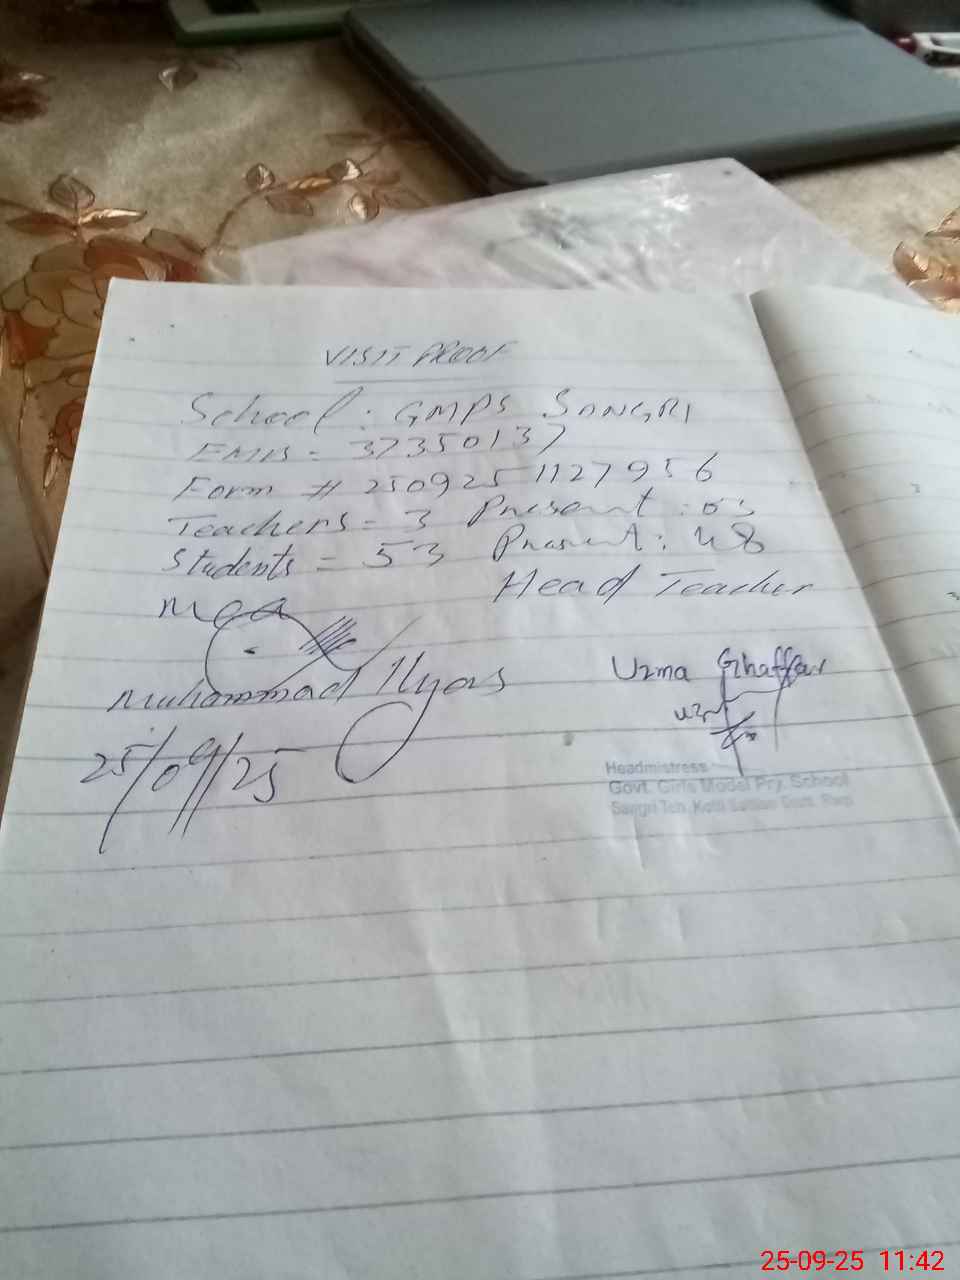 VISIT PROOF
School: GMPS SANGRI
EMIS = 37350137
Form # 2509251127956
Teachers = 3 Present : 03
Students = 53 Present : 48
MEA
Head Teacher
Muhammad Ilyas
Uzma Ghaffar
25/09/25
Headmistress
Govt. Girls Model Pry. School
Sangri Teh. Kotli Sattian Distt. Rwp
25-09-25 11:42